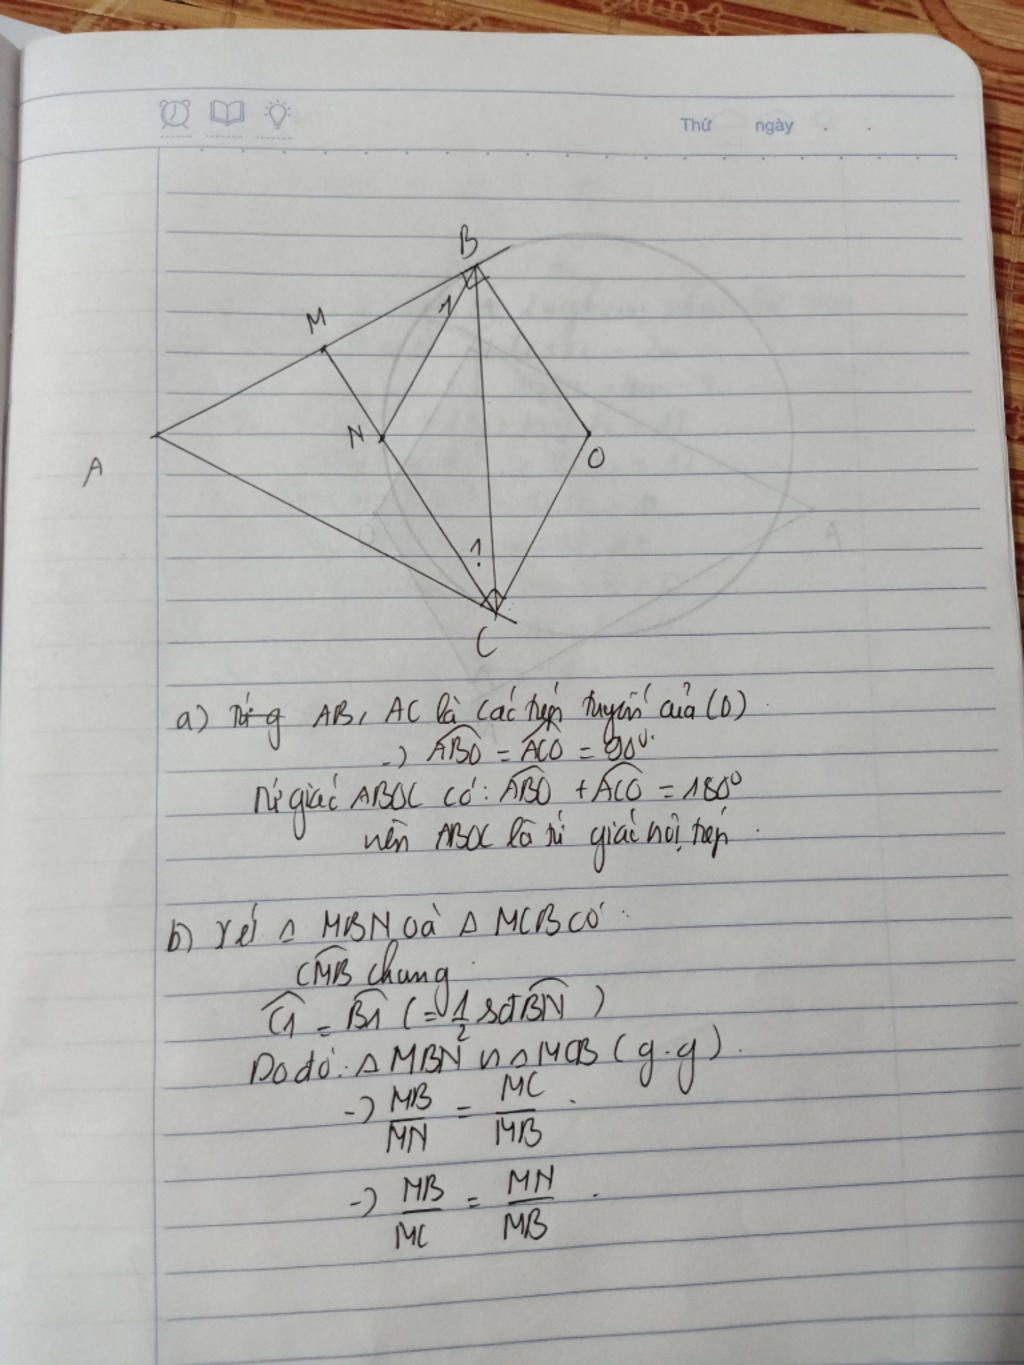 Thứ ngày
B
M
1
N
O
A
1
C
a) Từ g AB, AC là các tiếp tuyến của (O)
-) ABO = ACO = 90⁰.
Tứ giác ABOC có: ABO + ACO = 180⁰
nên ABOC là tứ giác nội tiếp.
b) Xét Δ MBN và Δ MCB có:
CMB chung.
C1 = B1 (= 1/2 sđ BN)
Do đó: Δ MBN ∽ Δ MCB (g.g).
-) MB/MN = MC/MB.
-) MB/MC = MN/MB.